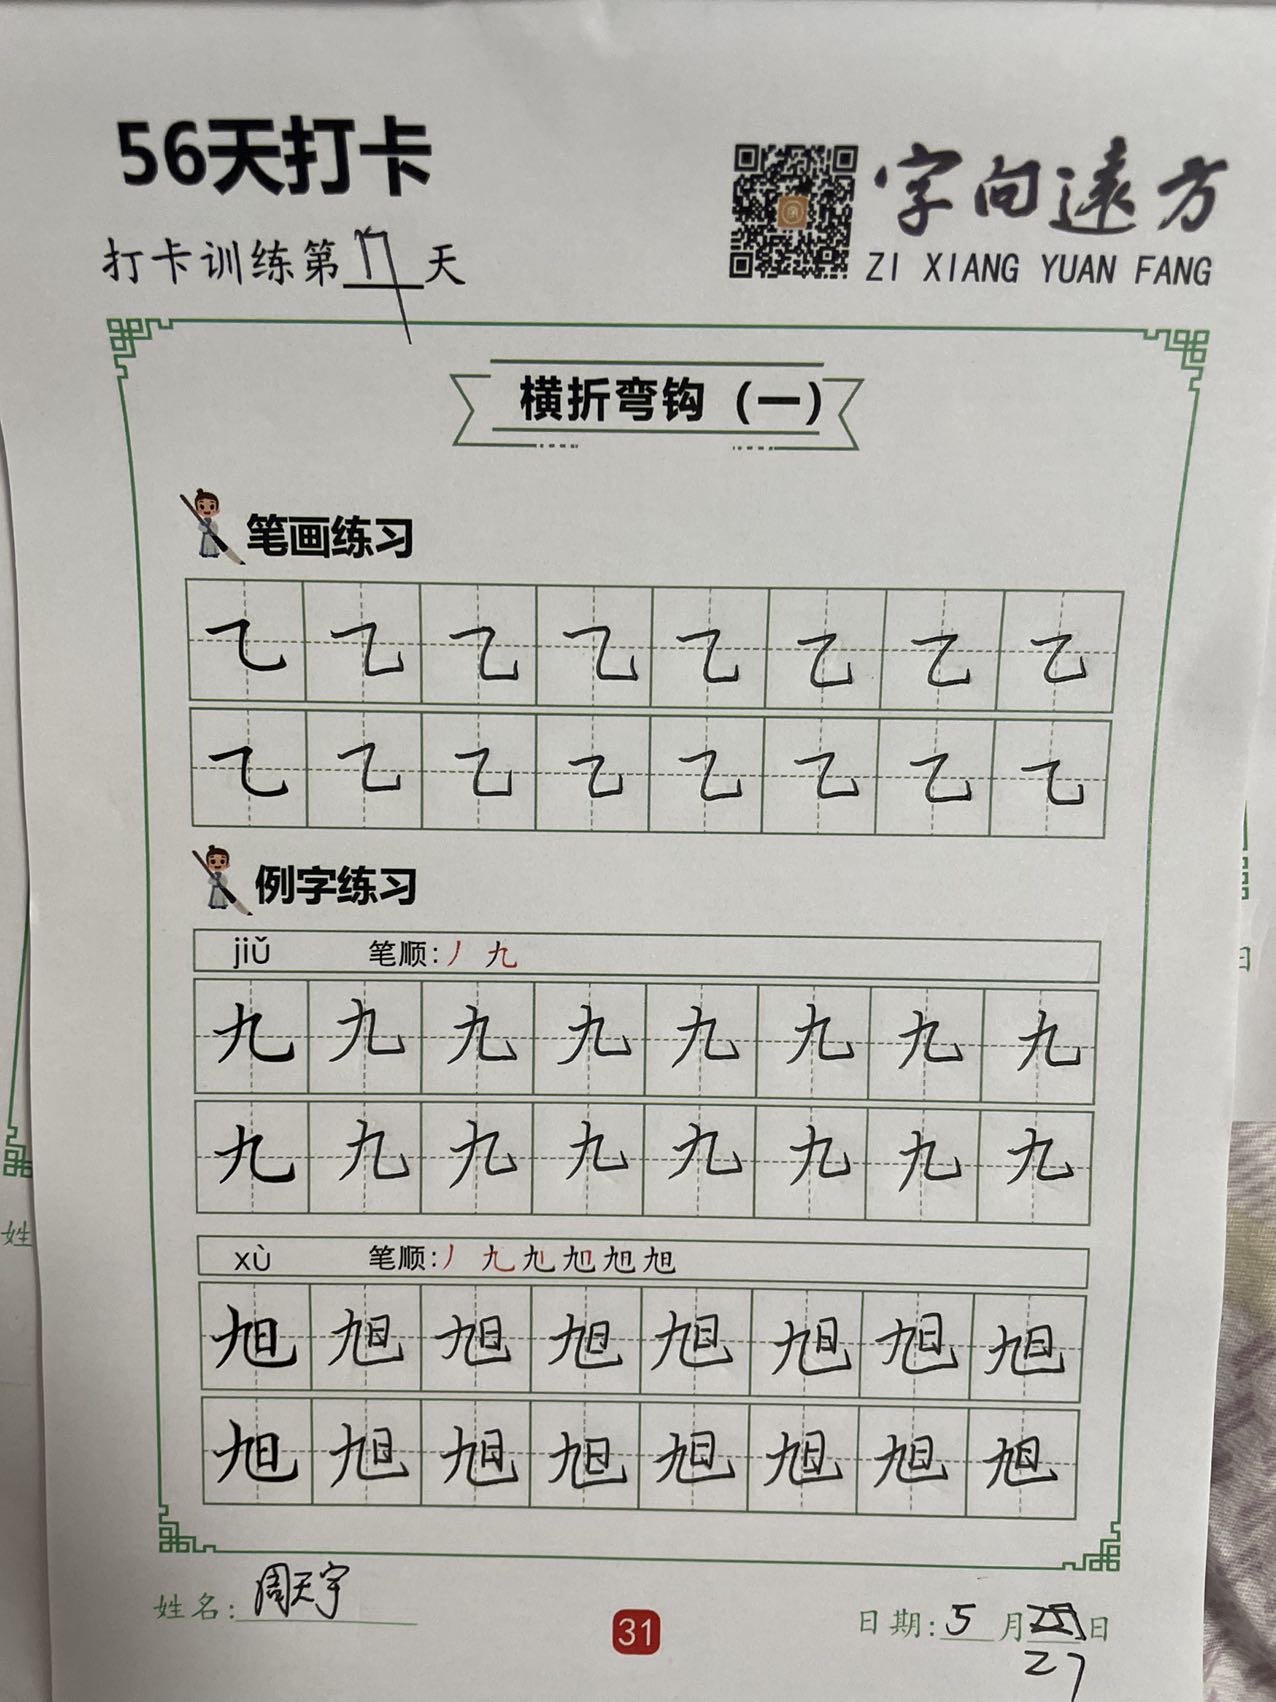 56天打卡
字向遠方
ZI XIANG YUAN FANG
打卡训练第17天
横折弯钩（一）
笔画练习
乙 乙 乙 乙 乙 乙 乙 乙
乙 乙 乙 乙 乙 乙 乙 乙
例字练习
jiǔ 笔顺：丿 九
九 九 九 九 九 九 九 九
九 九 九 九 九 九 九 九
xù 笔顺：丿 九 旭 旭 旭
旭 旭 旭 旭 旭 旭 旭 旭
旭 旭 旭 旭 旭 旭 旭 旭
姓名：周天宇
31
日期：5月27日
姓